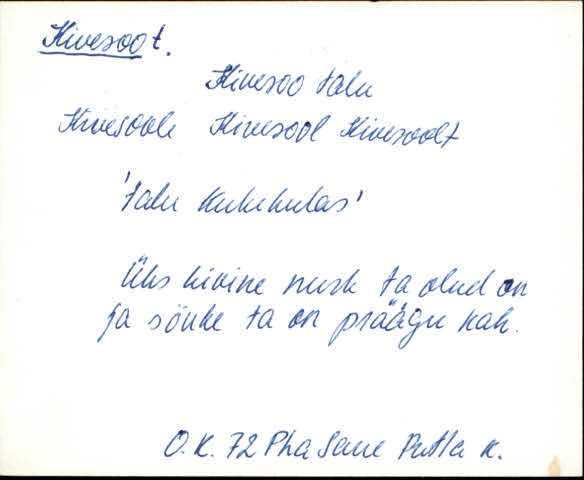 Kivesoo t.
Kivesoo talu
Kivesoole Kivesool Kivesoolt
'talu Kukekülas'
Üks kivine nurk ta olnd on
ja sõuke ta on präägu kah.
O. K. 72 Pha Saue Putla k.